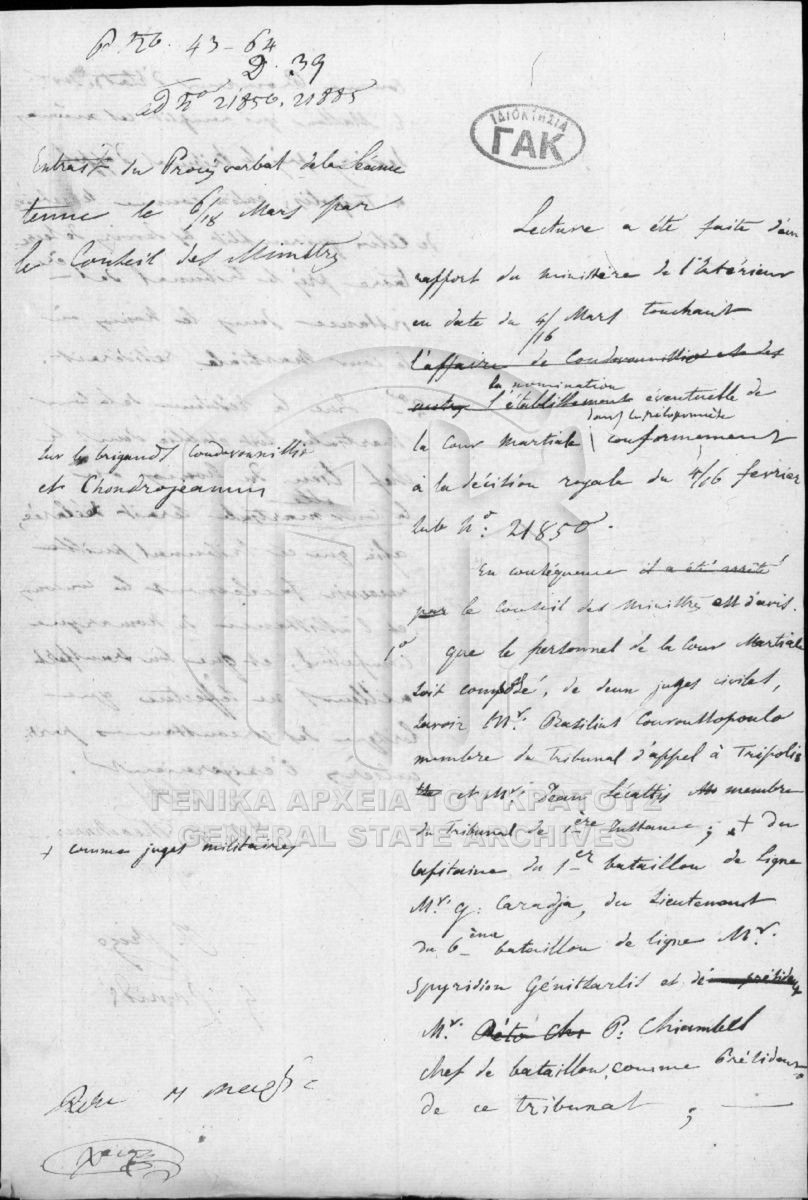 43-64
D. 39
ad No 21850. 21885
ΙΔΙΟΚΤΗΣΙΑ
ΓΑΚ
Extrait du Procès verbal de la Séance
tenue le 6/18 Mars par
le Conseil des Ministres
Sur les brigands Condovounissio
et Chondrojeannis
Lecture a été faite d'un
rapport du ministère de l'Intérieur
en date du 4/16 Mars touchant
l'affaire de Condovounissio et des
autres l'établissement éventuelle de
la nomination
la Cour martiale conformement
dans le péloponnèse
à la décision royale du 4/16 fevrier
sub No: 21850.
En conséquence il a été arrêté
par le Conseil des Ministres est d'avis.
1o que le personnel de la Cour Martiale
soit composé, de deux juges civiles,
savoir Mr. Basilius Couroussopoulo
membre du Tribunal d'appel à Tripolis
et Mr. Jean membre
du Tribunal de 1ère Instance; + du
+ comme juges militaires
Capitaine du 1er bataillon de ligne
Mr. G. Caradja, du Lieutenant
du 6ème bataillon de ligne Mr.
Spyridion Génitzarlis et de président
Mr. P. Chiambel
chef de bataillon, comme Président
de ce tribunal ;
ΓΕΝΙΚΑ ΑΡΧΕΙΑ ΤΟΥ ΚΡΑΤΟΥΣ
GENERAL STATE ARCHIVES